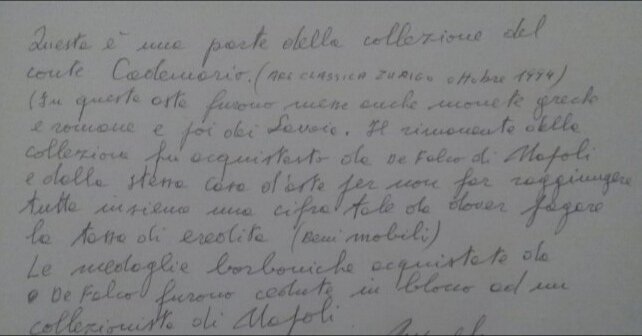 Questa è una parte della collezione del
conte Cademario. (ARS CLASSICA ZURIGO ottobre 1994)
(In questa asta furono messe anche monete greche
e romane e poi dei Savoia. Il rimanente della
collezione fu acquistato da De Falco di Napoli
e dalla stessa casa d'aste per non far raggiungere
tutte insieme una cifra tale da dover pagare
la tassa di eredita (Beni mobili)
Le medaglie borboniche acquistate da
De Falco furono cedute in blocco ad un
collezionista di Napoli